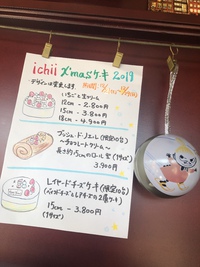 ichii X'masケーキ 2019
デザインは変更します。
いちごと生クリーム
12cm - 2.800円
15cm - 3.800円
18cm - 4.900円
ブッシュ・ド・ノエル (限定10台)
〜チョコレートクリーム〜
長さ約15cmのロール型(1サイズ)
3.900円
レイヤードチーズケーキ(限定10台)
2層ケーキ)
15cm - 3.800円
(1サイズ)